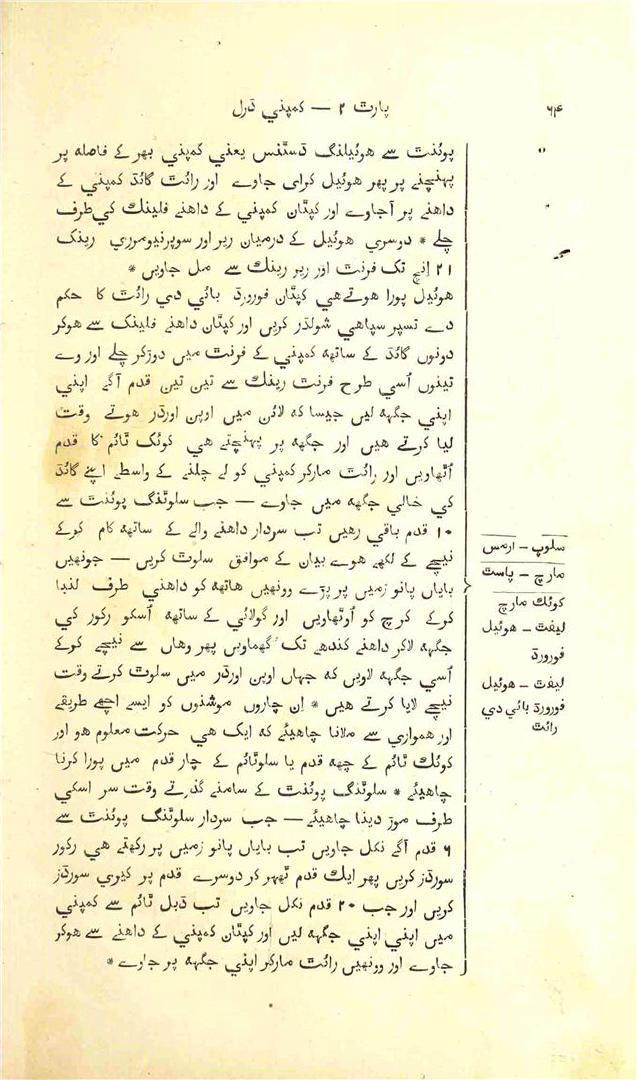 ۶۴
پارٹ ۲ — کمپني ڈرل
پوئنٹ سے هوئيلنگ ڈسٹنس يعني کمپني بھر کے فاصله پر
پہنچنے پر پھر هوئيل کراي جاوے اور رائٹ گائڈ کمپني کے
داهنے پر آجاوے اور کپتان کمپني کے داهنے فلينک کي طرف
چلے * دوسري هوئيل کے درميان رير اور سوپرنيومرري رينک
۲۱ انچ تک فرنٹ اور رير رينک سے مل جاويں *
هوئيل پورا هوتے هي کپتان فورورڈ بائي دي رائٹ کا حکم
دے تسپر سپاهي شولڈر کريں اور کپتان داهنے فلينک سے هوکر
دونوں گائڈ کے ساتھه کمپني کے فرنٹ ميں دوڑکر چلے اور وے
تينوں اُسي طرح فرنٹ رينک سے تين تين قدم آگے اپني
اپني جگهه ليں جيسا که لائن ميں اوپن اورڈر هوتے وقت
ليا کرتے هيں اور جگهه پر پهنچتے هي کوئک ٹائم کا قدم
اُٹھاويں اور رائٹ مارکر کمپني کو لے چلنے کے واسطے اپنے گائڈ
کي خالي جگهه ميں جاوے — جب سلوٹنگ پوئنٹ سے
۱۰ قدم باقي رهيں تب سردار داهنے والے کے ساتھه کام کرکے
نيچے کے لکھے هوے بيان کے موافق سلوٹ کريں — جونهيں
باياں پانو زميں پر پڑے وونهيں هاتھه کو داهني طرف لنبا
کرکے کرچ کو اوٹھاويں اور گولائي کے ساتھه اُسکو رکور کي
جگهه لاکر داهنے کندھے تک گھماويں پھر وهاں سے نيچے کرکے
اُسي جگهه لاويں که جهاں اوپن اورڈر ميں سلوٹ کرتے وقت
نيچے لايا کرتے هيں * اِن چاروں موشنوں کو ايسے اچھے طريقے
اور همواري سے ملانا چاهيئے که ايک هي حرکت معلوم هو اور
کوئک ٹائم کے چھه قدم يا سلوٹائم کے چار قدم ميں پورا کرنا
چاهيئے * سلوٹنگ پوئنٹ کے سامنے گذرتے وقت سر اسکي
طرف موڑ دينا چاهيئے — جب سردار سلوٹنگ پوئنٹ سے
۶ قدم آگے نکل جاويں تب باياں پانو زميں پر رکھتے هي رکور
سورڈز کريں پھر ايک قدم ٹھهر کر دوسرے قدم پر کيري سورڈز
کريں اور جب ۲۰ قدم نکل جاويں تب ڈبل ٹائم سے کمپني
ميں اپني اپني جگهه ليں اور کپتان کمپني کے داهنے سے هوکر
جاوے اور وونهيں رائٹ مارکر اپني جگهه پر جاوے *
سلوپ - ارمس
مارچ - پاسٹ
کوئک مارچ
ليفٹ - هوئيل
فورورڈ
ليفٹ - هوئيل
فورورڈ بائي دي
رائٹ